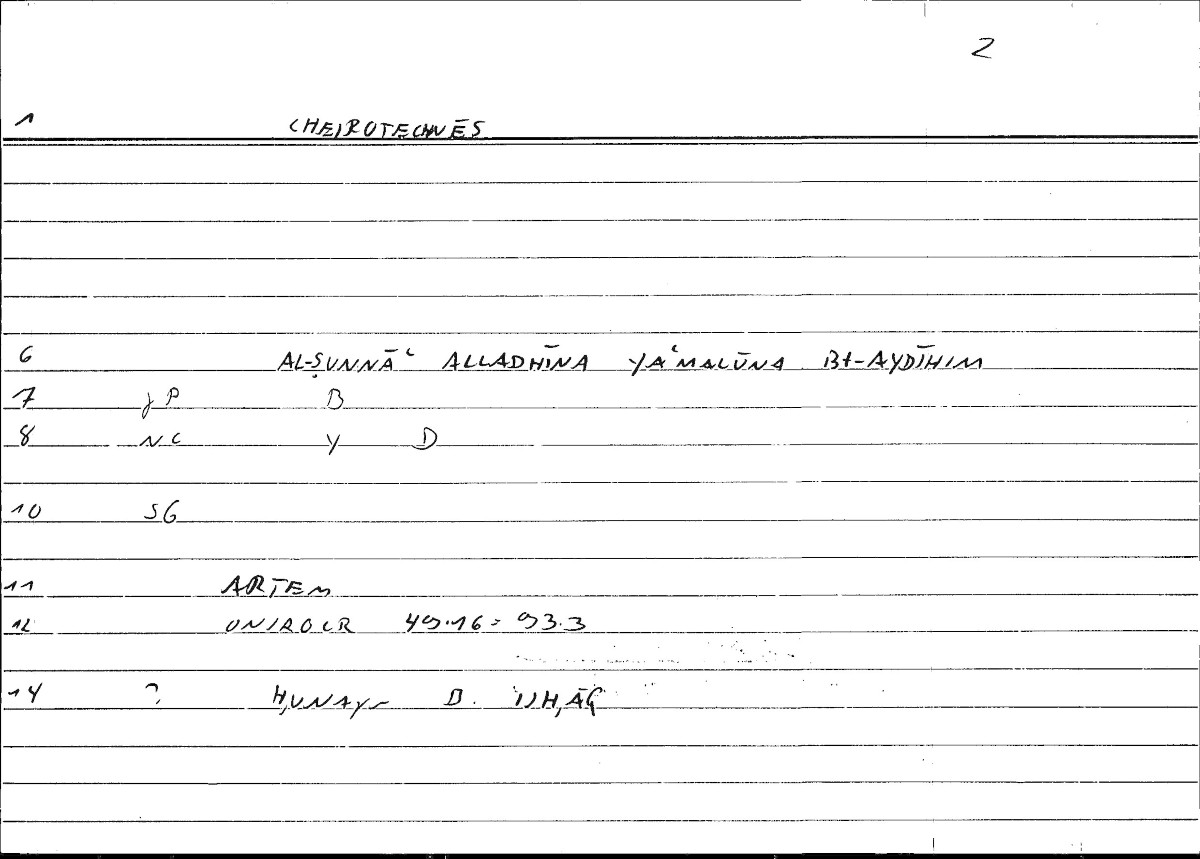 2
1 CHEIROTECHNĒS
6 AL-ṢUNNĀʿ ALLADHĪNA YAʿMALŪNA BI-AYDĪHIM
7 P B
8 NC Y D
10 SG
11 ARTEM
12 ONIROCR 49.16 = 93.3
14 ? ḤUNAYN B. ISḤĀQ